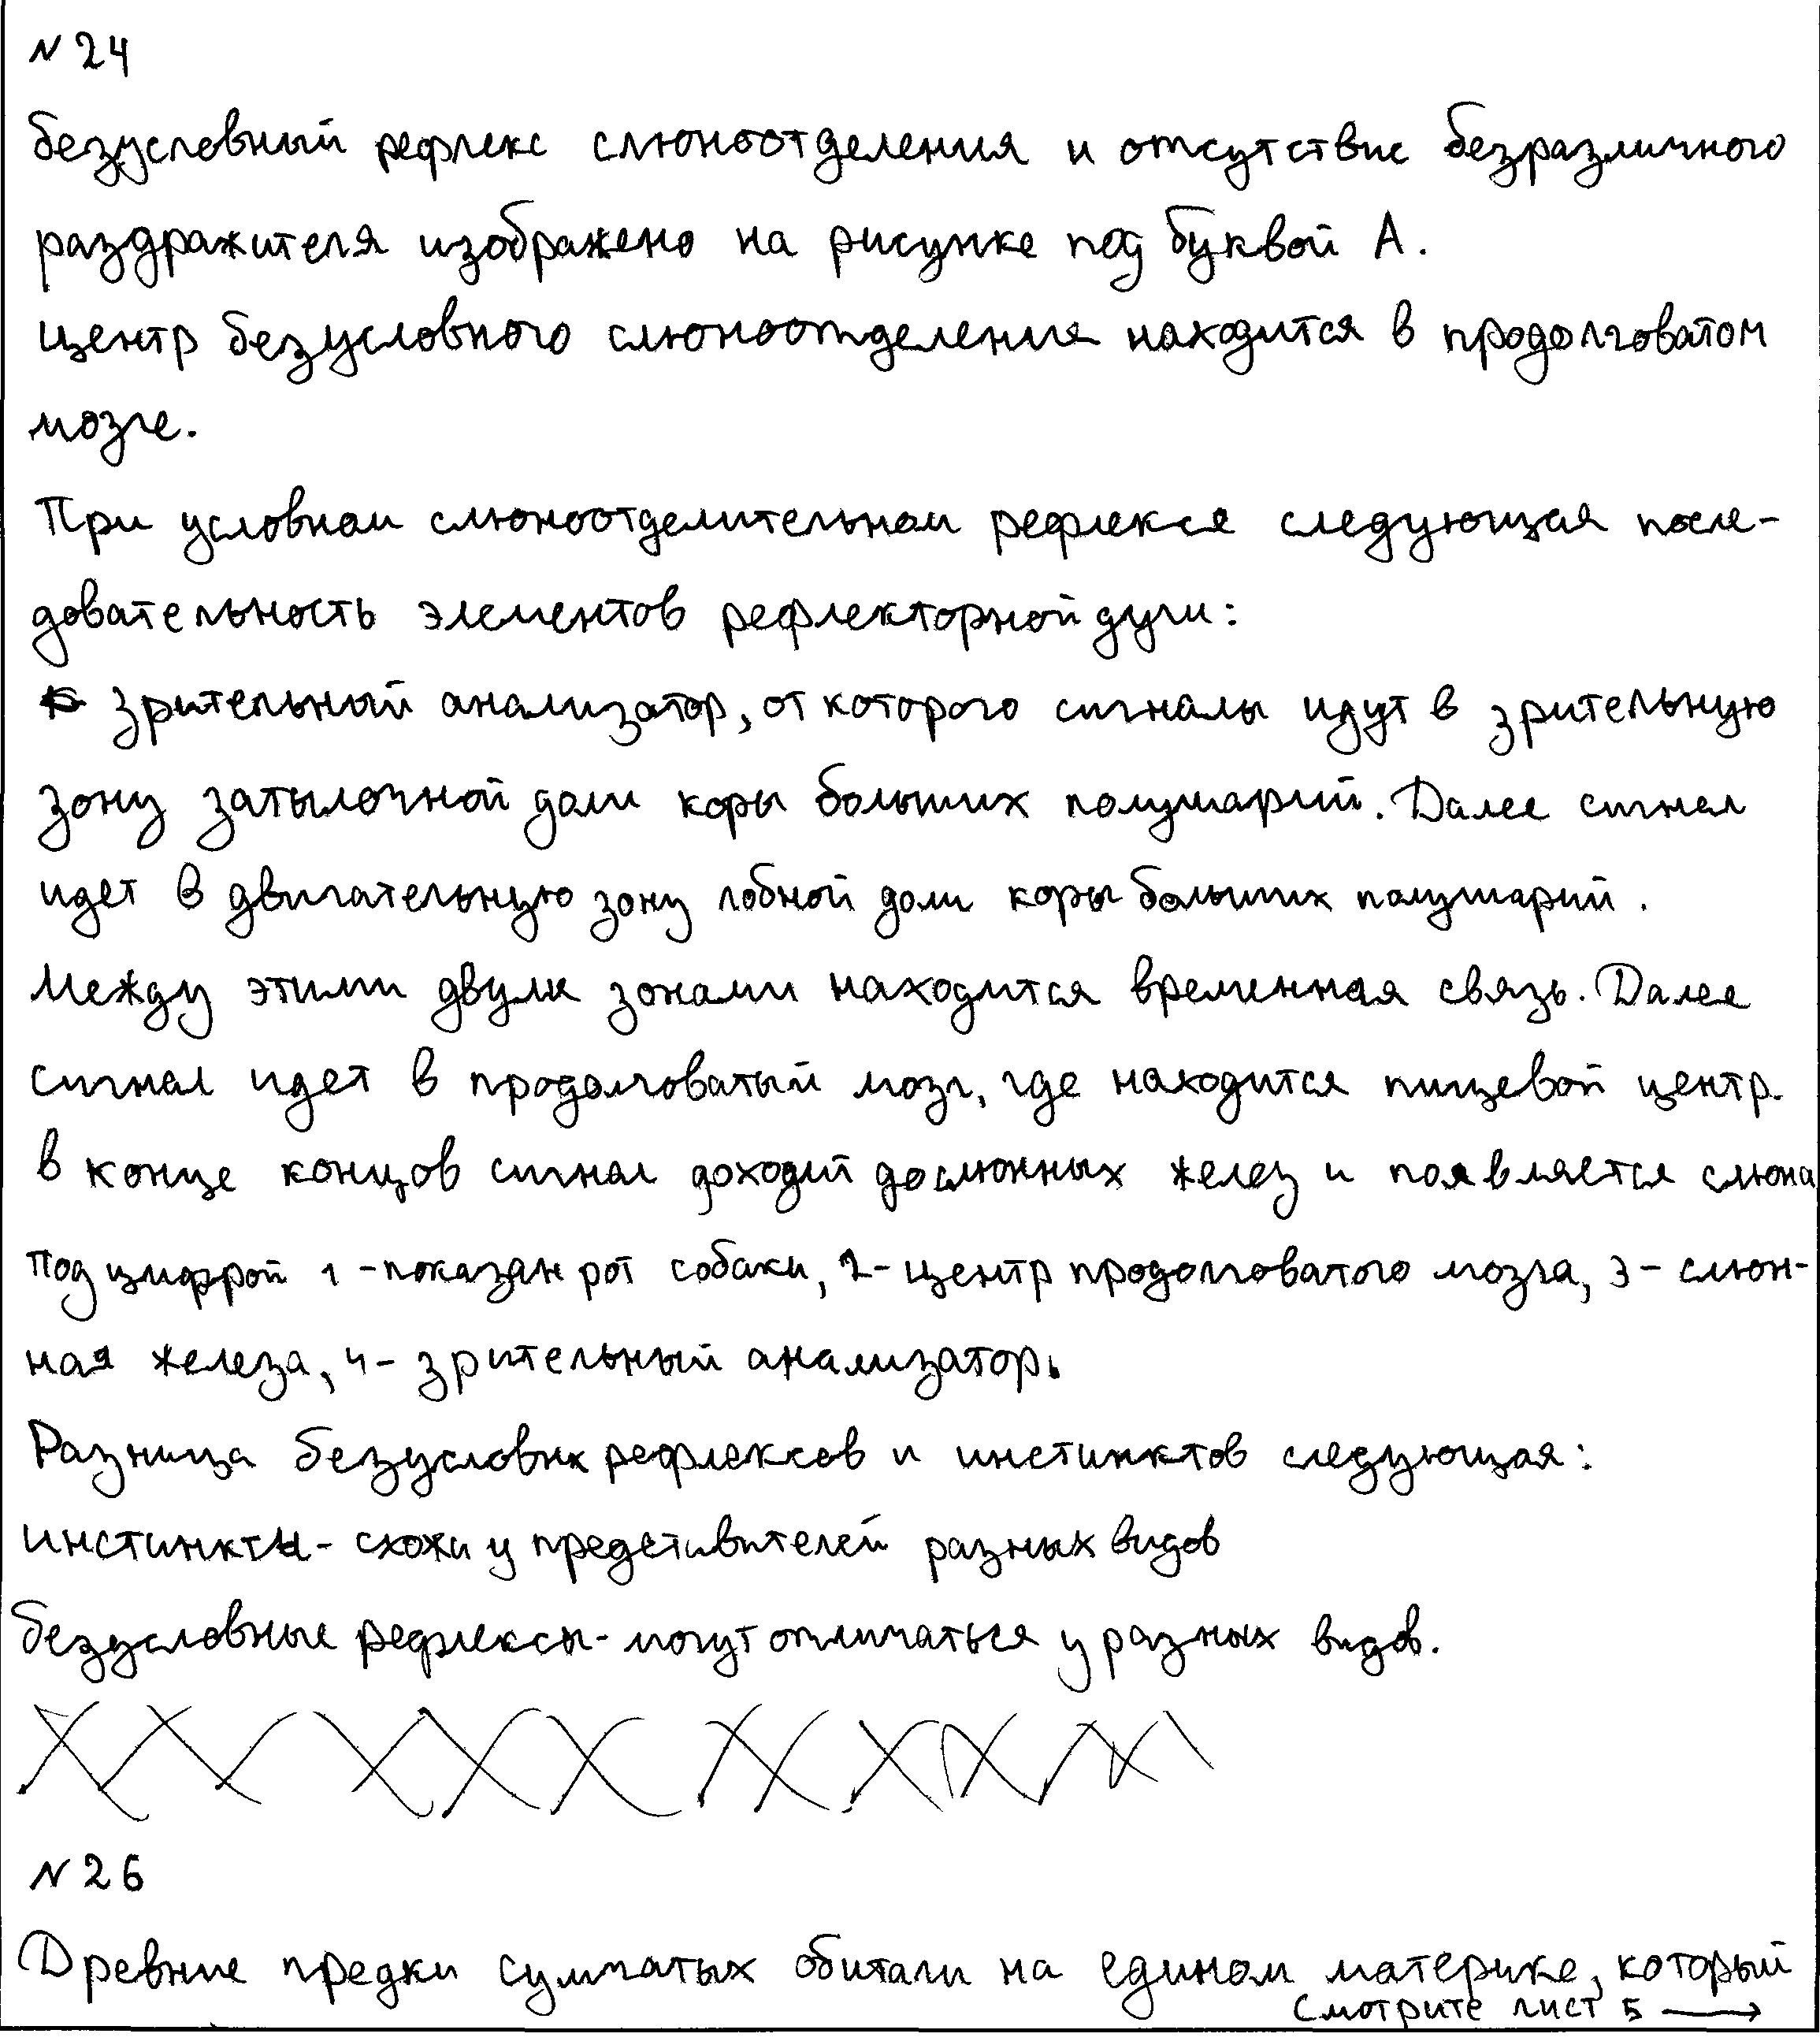 № 24
безусловный рефлекс слюноотделения и отсутствие безразличного
раздражителя изображено на рисунке под буквой А.
центр безусловного слюноотделения находится в продолговатом
мозге.
При условном слюноотделительном рефлексе следующая после-
довательность элементов рефлекторной дуги:
зрительный анализатор, от которого сигналы идут в зрительную
зону затылочной доли коры больших полушарий. Далее сигнал
идет в двигательную зону лобной доли коры больших полушарий.
Между этими двумя зонами находится временная связь. Далее
сигнал идет в продолговатый мозг, где находится пищевой центр.
в конце концов сигнал доходит до слюнных желез и появляется слюна
под цифрой 1 - показан рот собаки, 2 - центр продолговатого мозга, 3 - слюн-
ная железа, 4 - зрительный анализатор.
Разница безусловных рефлексов и инстинктов следующая:
инстинкты - схожи у представителей разных видов
безусловные рефлексы - могут отличаться у разных видов.
№ 26
Древние предки сумчатых обитали на едином материке, который
Смотрите лист 5 →